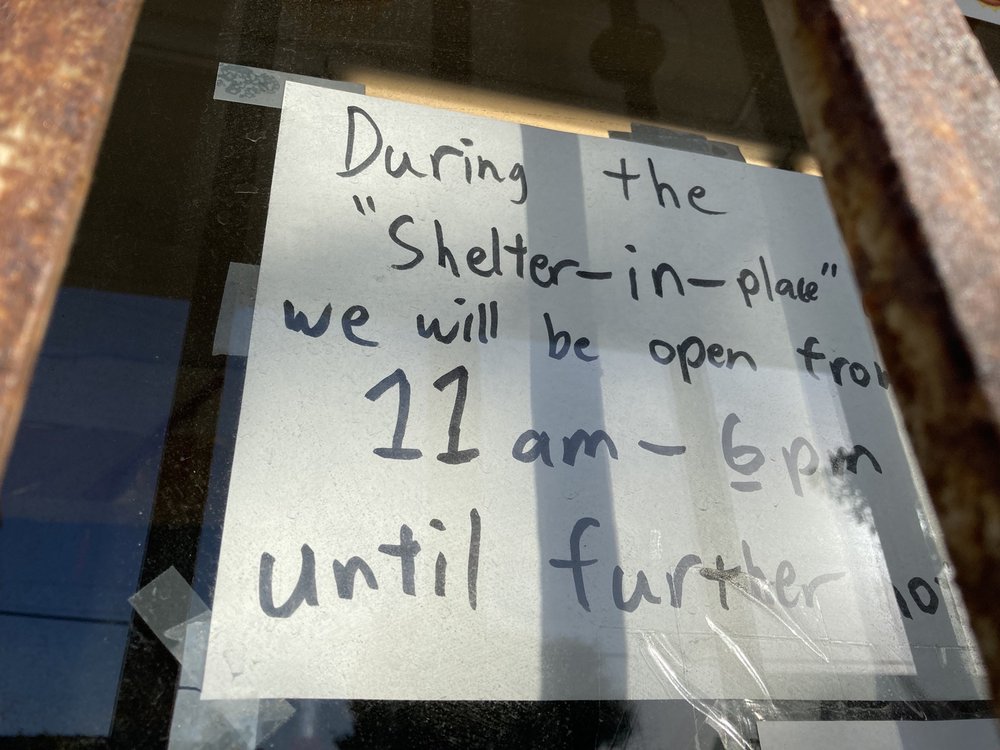 During the
"Shelter-in-place"
we will be open from
11 am - 6 pm
until further